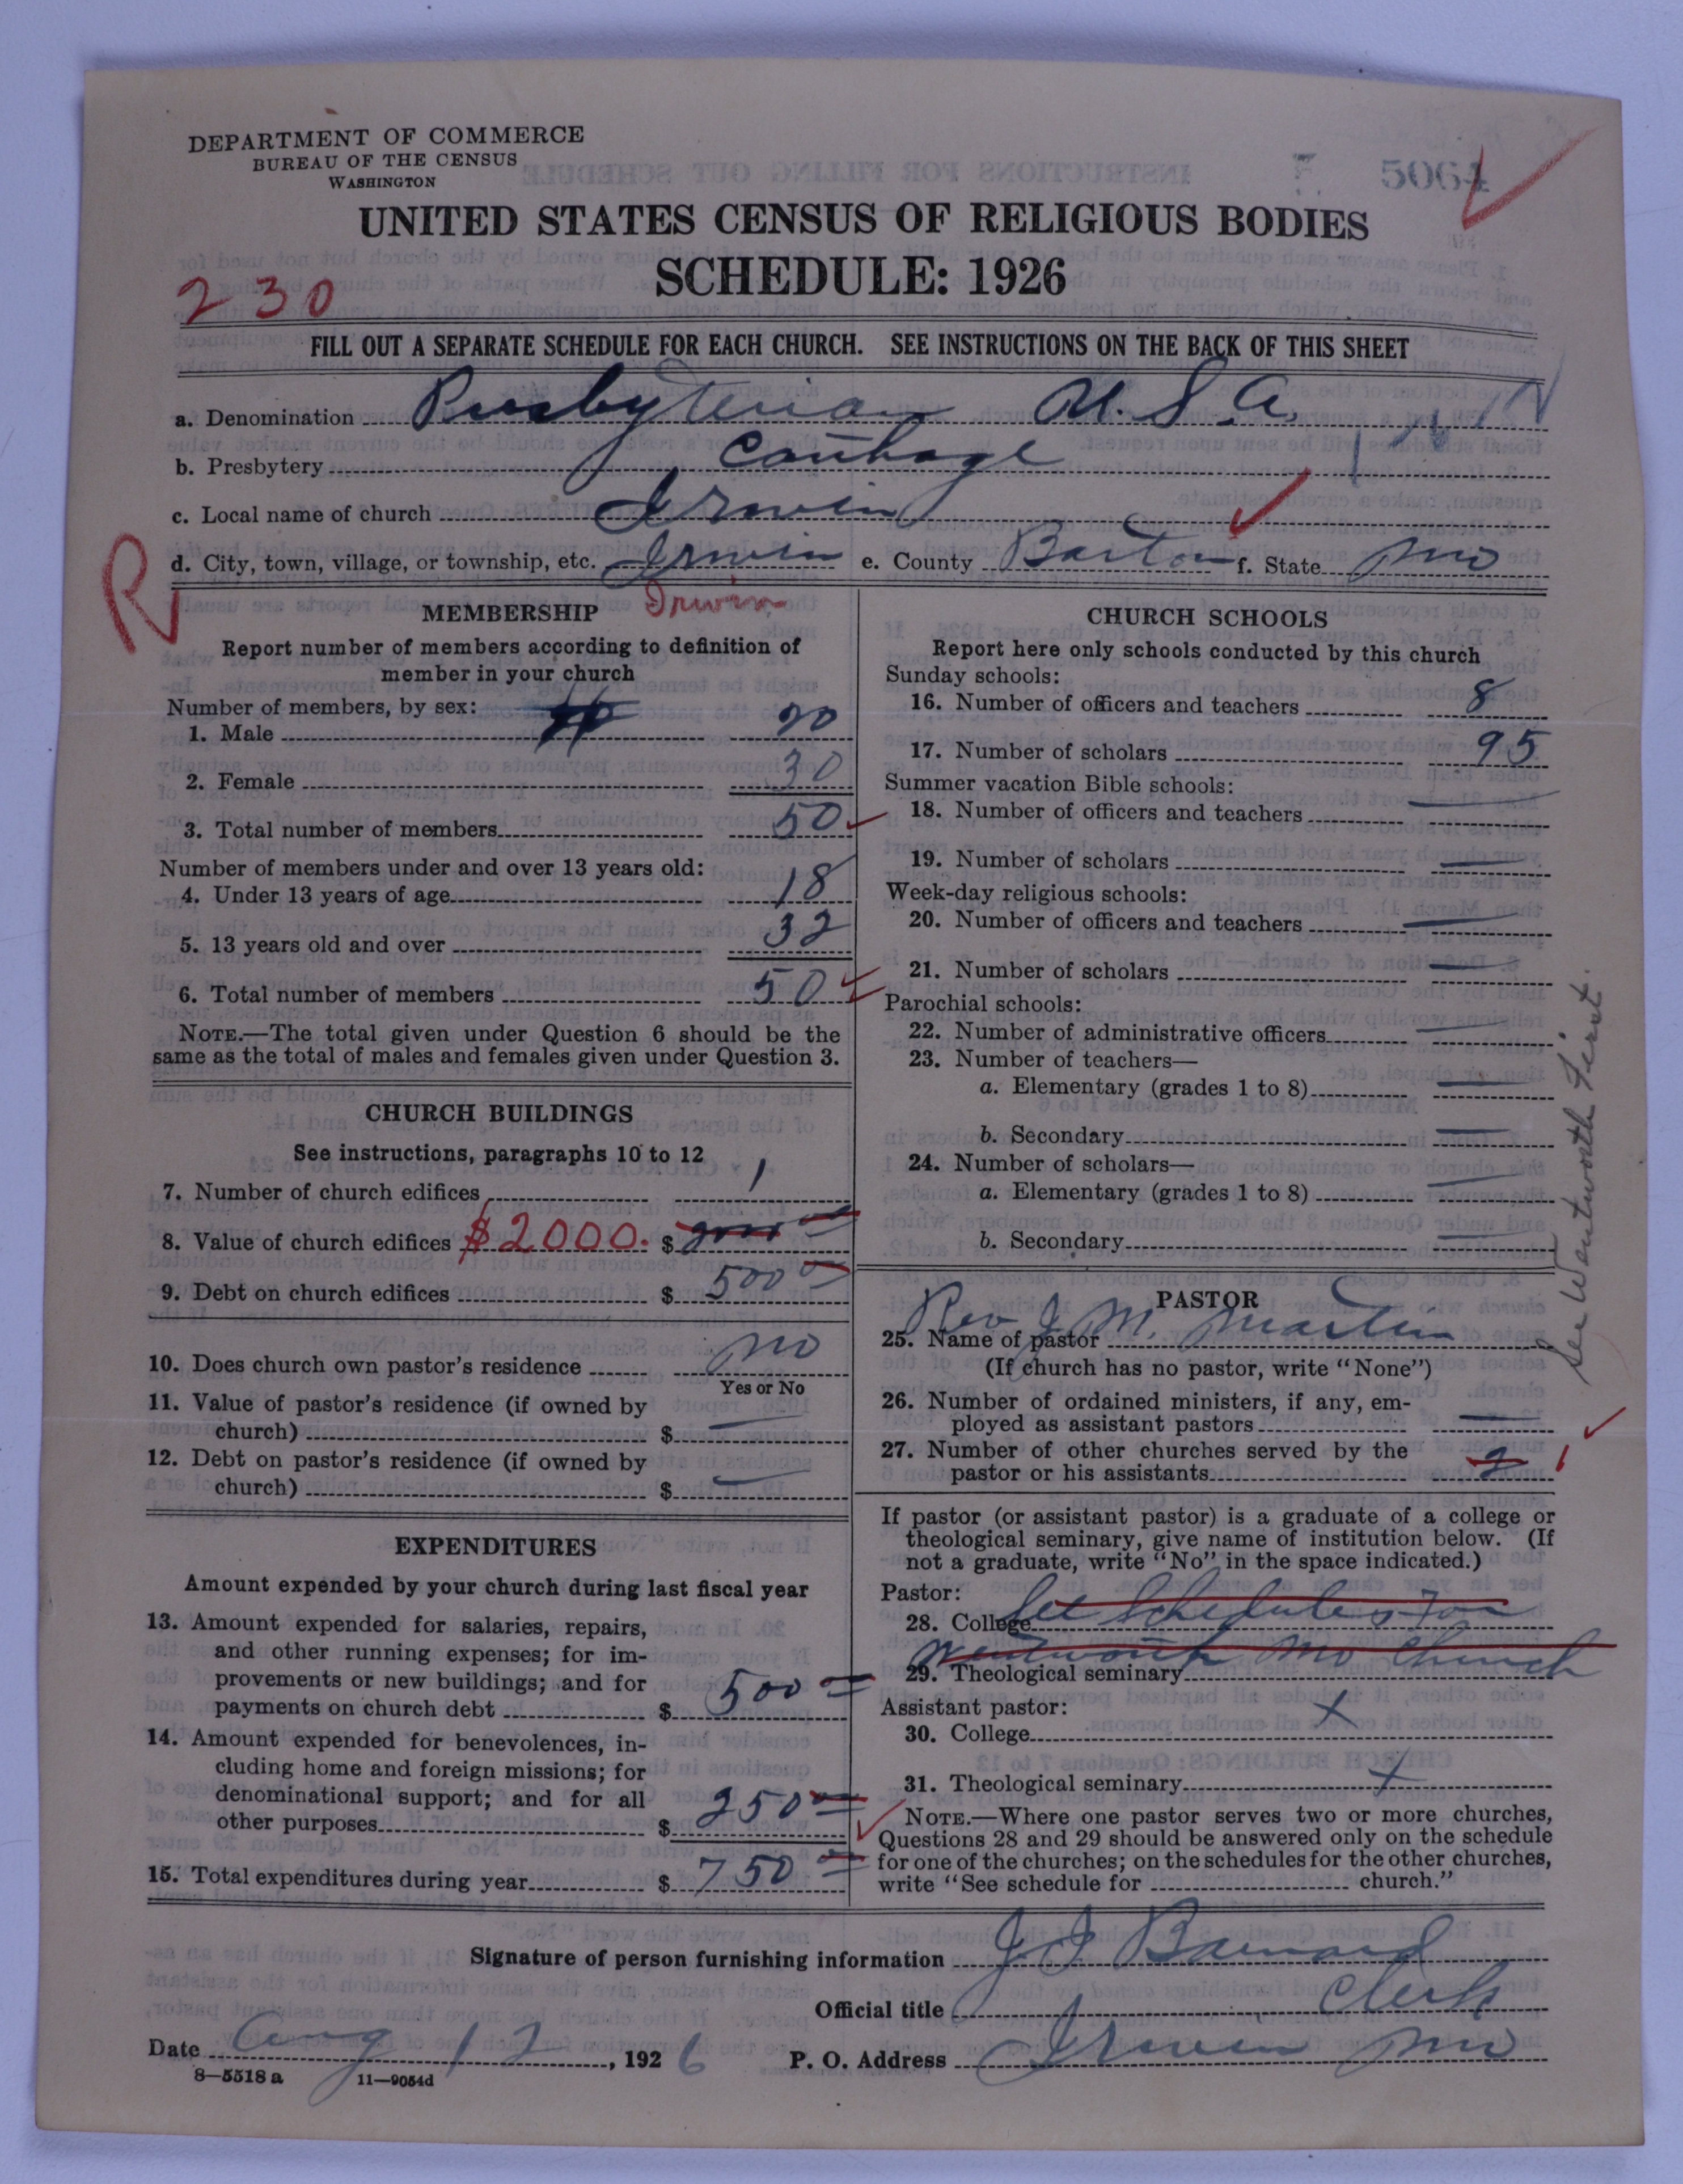 DEPARTMENT OF COMMERCE
BUREAU OF THE CENSUS
WASHINGTON
5064
UNITED STATES CENSUS OF RELIGIOUS BODIES
SCHEDULE: 1926
230
FILL OUT A SEPARATE SCHEDULE FOR EACH CHURCH. SEE INSTRUCTIONS ON THE BACK OF THIS SHEET
a. Denomination Presbyterian U.S.A.
b. Presbytery Carthage
c. Local name of church Irwin
R
d. City, town, village, or township, etc. Irwin e. County Barton f. State Mo
MEMBERSHIP Irwin
Report number of members according to definition of
member in your church
Number of members, by sex:
1. Male 20
2. Female 30
3. Total number of members 50
Number of members under and over 13 years old:
4. Under 13 years of age 18
5. 13 years old and over 32
6. Total number of members 50
NOTE.—The total given under Question 6 should be the
same as the total of males and females given under Question 3.
CHURCH BUILDINGS
See instructions, paragraphs 10 to 12
7. Number of church edifices 1
8. Value of church edifices $2000. $ 2000
9. Debt on church edifices $ 500 00
10. Does church own pastor's residence no
Yes or No
11. Value of pastor's residence (if owned by
church) $ —
12. Debt on pastor's residence (if owned by
church) $ —
EXPENDITURES
Amount expended by your church during last fiscal year
13. Amount expended for salaries, repairs,
and other running expenses; for im-
provements or new buildings; and for
payments on church debt $ 500 00
14. Amount expended for benevolences, in-
cluding home and foreign missions; for
denominational support; and for all
other purposes $ 250 00
15. Total expenditures during year $ 750 00
CHURCH SCHOOLS
Report here only schools conducted by this church
Sunday schools:
16. Number of officers and teachers 8
17. Number of scholars 95
Summer vacation Bible schools:
18. Number of officers and teachers —
19. Number of scholars —
Week-day religious schools:
20. Number of officers and teachers —
21. Number of scholars —
Parochial schools:
22. Number of administrative officers —
23. Number of teachers—
a. Elementary (grades 1 to 8) —
b. Secondary —
24. Number of scholars—
a. Elementary (grades 1 to 8) —
b. Secondary —
PASTOR
25. Name of pastor Rev J. M. Martin
(If church has no pastor, write "None")
26. Number of ordained ministers, if any, em-
ployed as assistant pastors —
27. Number of other churches served by the
pastor or his assistants 2 1
If pastor (or assistant pastor) is a graduate of a college or
theological seminary, give name of institution below. (If
not a graduate, write "No" in the space indicated.)
Pastor:
28. College See Schedule for
29. Theological seminary Wentworth Mo Church
Assistant pastor:
30. College x
31. Theological seminary x
NOTE.—Where one pastor serves two or more churches,
Questions 28 and 29 should be answered only on the schedule
for one of the churches; on the schedules for the other churches,
write "See schedule for church."
See Wentworth First.
Signature of person furnishing information J J Barnard
Official title Clerk
Date Aug 12, 1926 P. O. Address Irwin Mo
8—5518 a 11—9054d